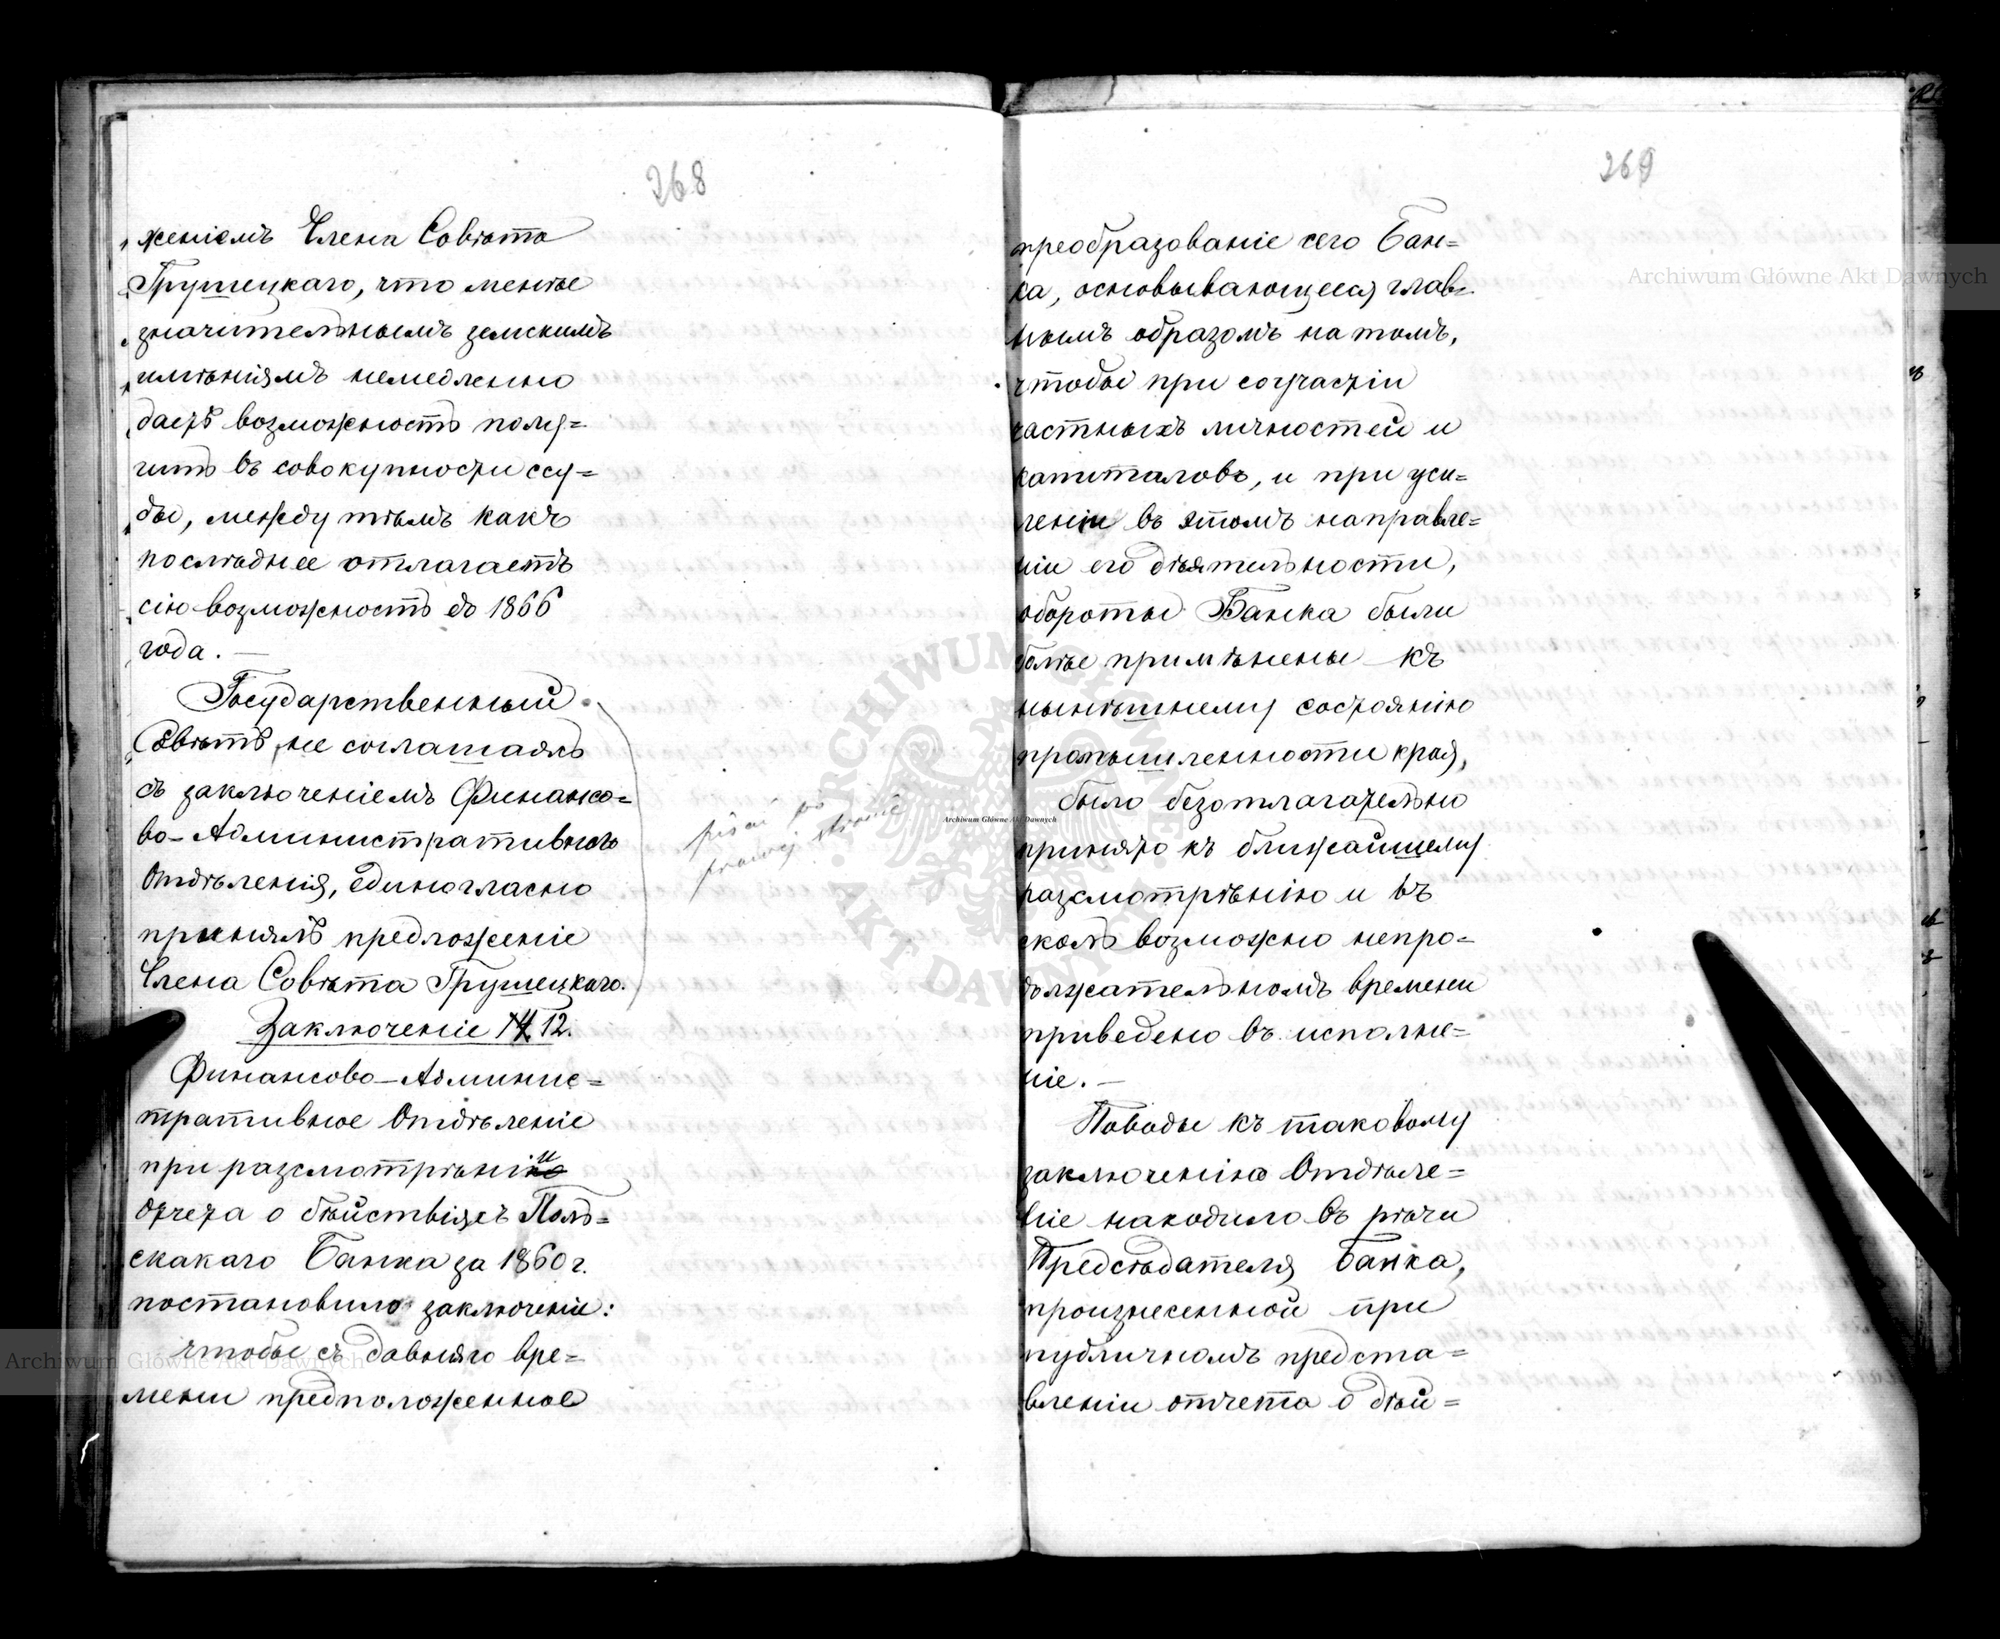 268
женіемъ Члена Совѣта
Грушецкаго, что менѣе
значительнымъ земскимъ
имѣніямъ немедленно
даетъ возможность полу=
чить въ совокупности ссу=
ды, между тѣмъ какъ
послѣднее отлагаетъ
сію возможность до 1866
года. —
Государственный
Совѣтъ, не соглашаясь
съ заключеніемъ Финансо=
во-Административнаго
Отдѣленія, единогласно
принялъ предложеніе
Члена Совѣта Грушецкаго.
pisać po
prawej stronie
Заключеніе № 12.
Финансово-Админис=
тративное Отдѣленіе
при разсмотрѣніи
отчета о дѣйствіяхъ Поль=
скакаго Банка за 1860 г.
постановило заключеніе:
чтобы съ давняго вре=
мени предположенное
269
преобразованіе сего Бан=
ка, основывающееся глав=
нымъ образомъ на томъ,
чтобы при соучастіи
частныхъ личностей и
капиталовъ, и при уси=
леніи въ этомъ направле=
ніи его дѣятельности,
обороты Банка были
болѣе примѣнены къ
нынѣшнему состоянію
промышленности края,
было безотлагательно
принято къ ближайшему
разсмотрѣнію и въ
сколь возможно непро=
должательномъ времени
приведено въ исполне=
ніе. —
Поводы къ таковому
заключенію Отдѣле=
ніе находило въ рѣчи
Предсѣдателя Банка,
произнесенной при
публичномъ предста=
вленіи отчета о дѣй=
Archiwum Główne Akt Dawnych
Archiwum Główne Akt Dawnych
Archiwum Główne Akt Dawnych
ARCHIWUM GŁÓWNE AKT DAWNYCH